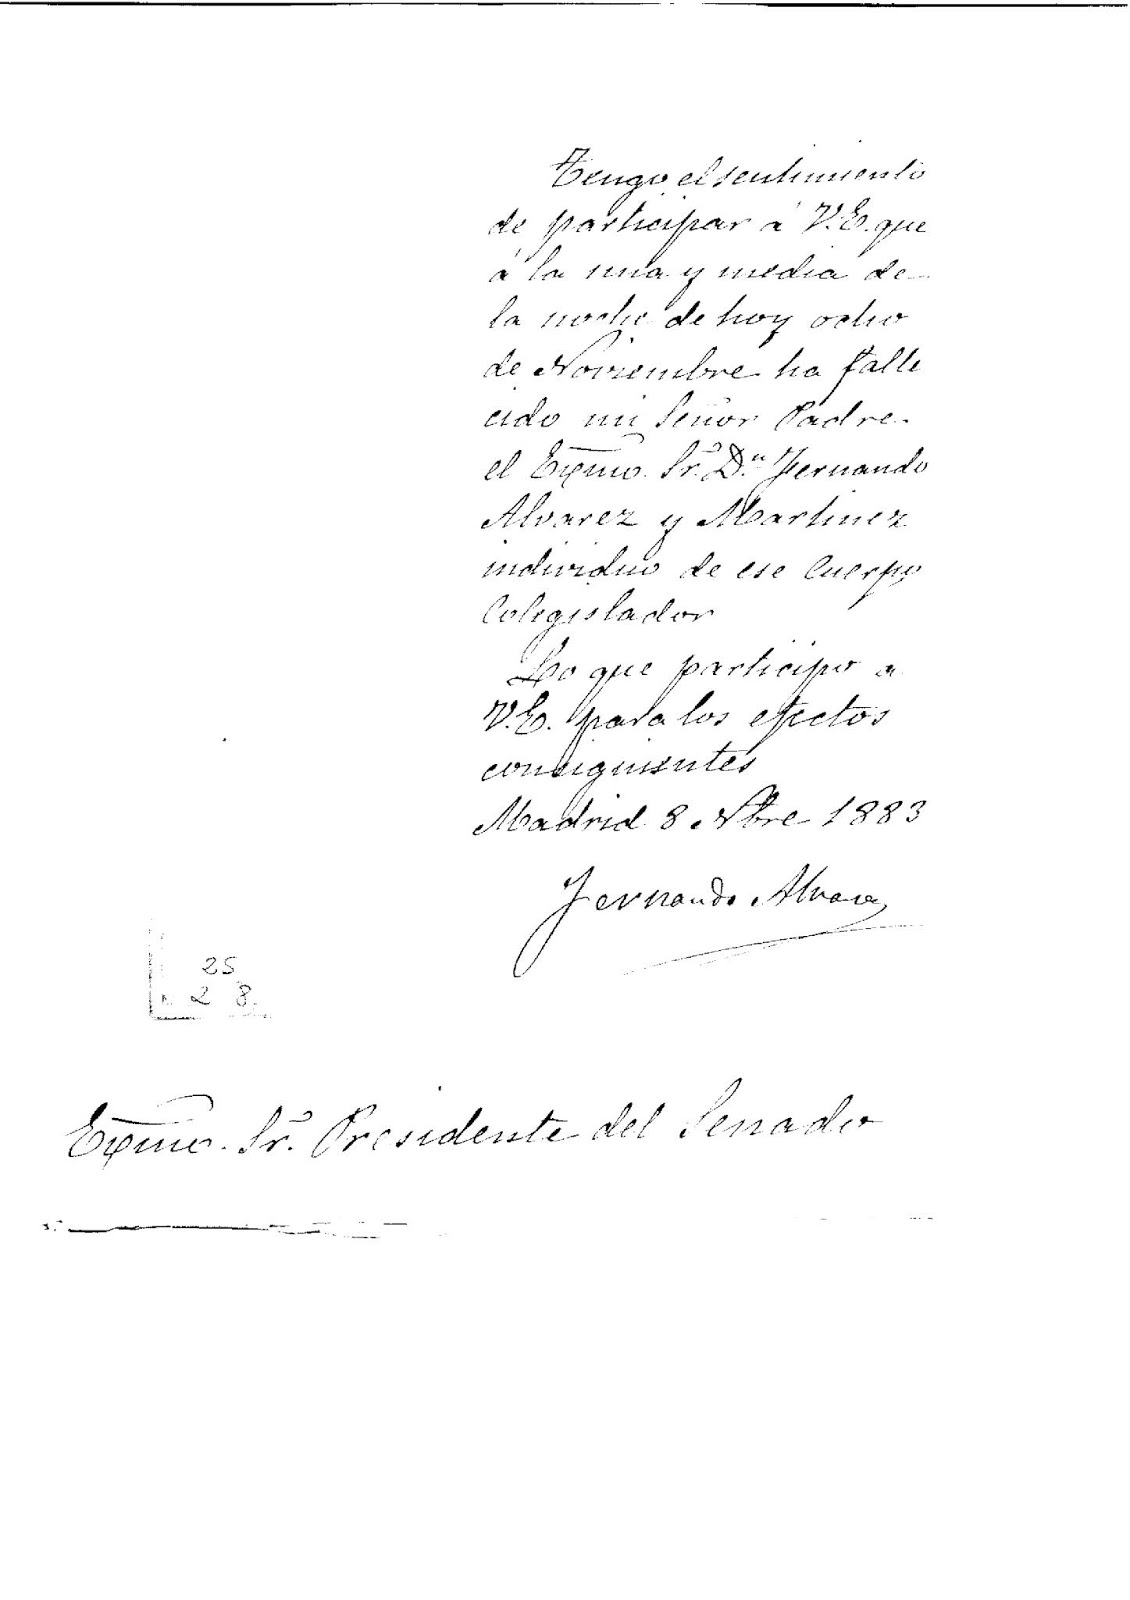 Tengo el sentimiento
de participar á V.E. que
á la una y media de
la noche de hoy ocho
de Noviembre ha falle
cido mi Señor Padre
el Exmo. Sr. Dn. Fernando
Alvarez y Martinez
individuo de ese Cuerpo
Colegislador
Lo que participo a
V.E. para los efectos
consiguientes
Madrid 8 Nbre 1883
Fernando Alvarez
25
2 8
Exmo. Sr. Presidente del Senado